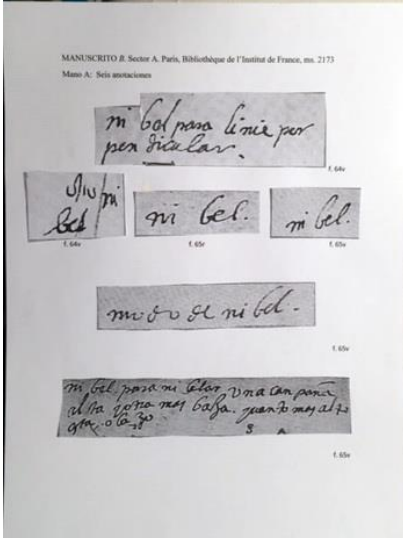 MANUSCRITO B. Sector A. Paris, Bibliothèque de l'Institut de France, ms. 2173
Mano A: Seis anotaciones
ni bel para linie per
pen dicular.
f. 64v
ni
bel
f. 64v
ni bel.
f. 65r
ni bel.
f. 65v
modo de ni bel.
f. 65v
ni bel para ni belar una can paña
alta y otra mas baxa. quanto mas alto
esta o baxo
f. 65v